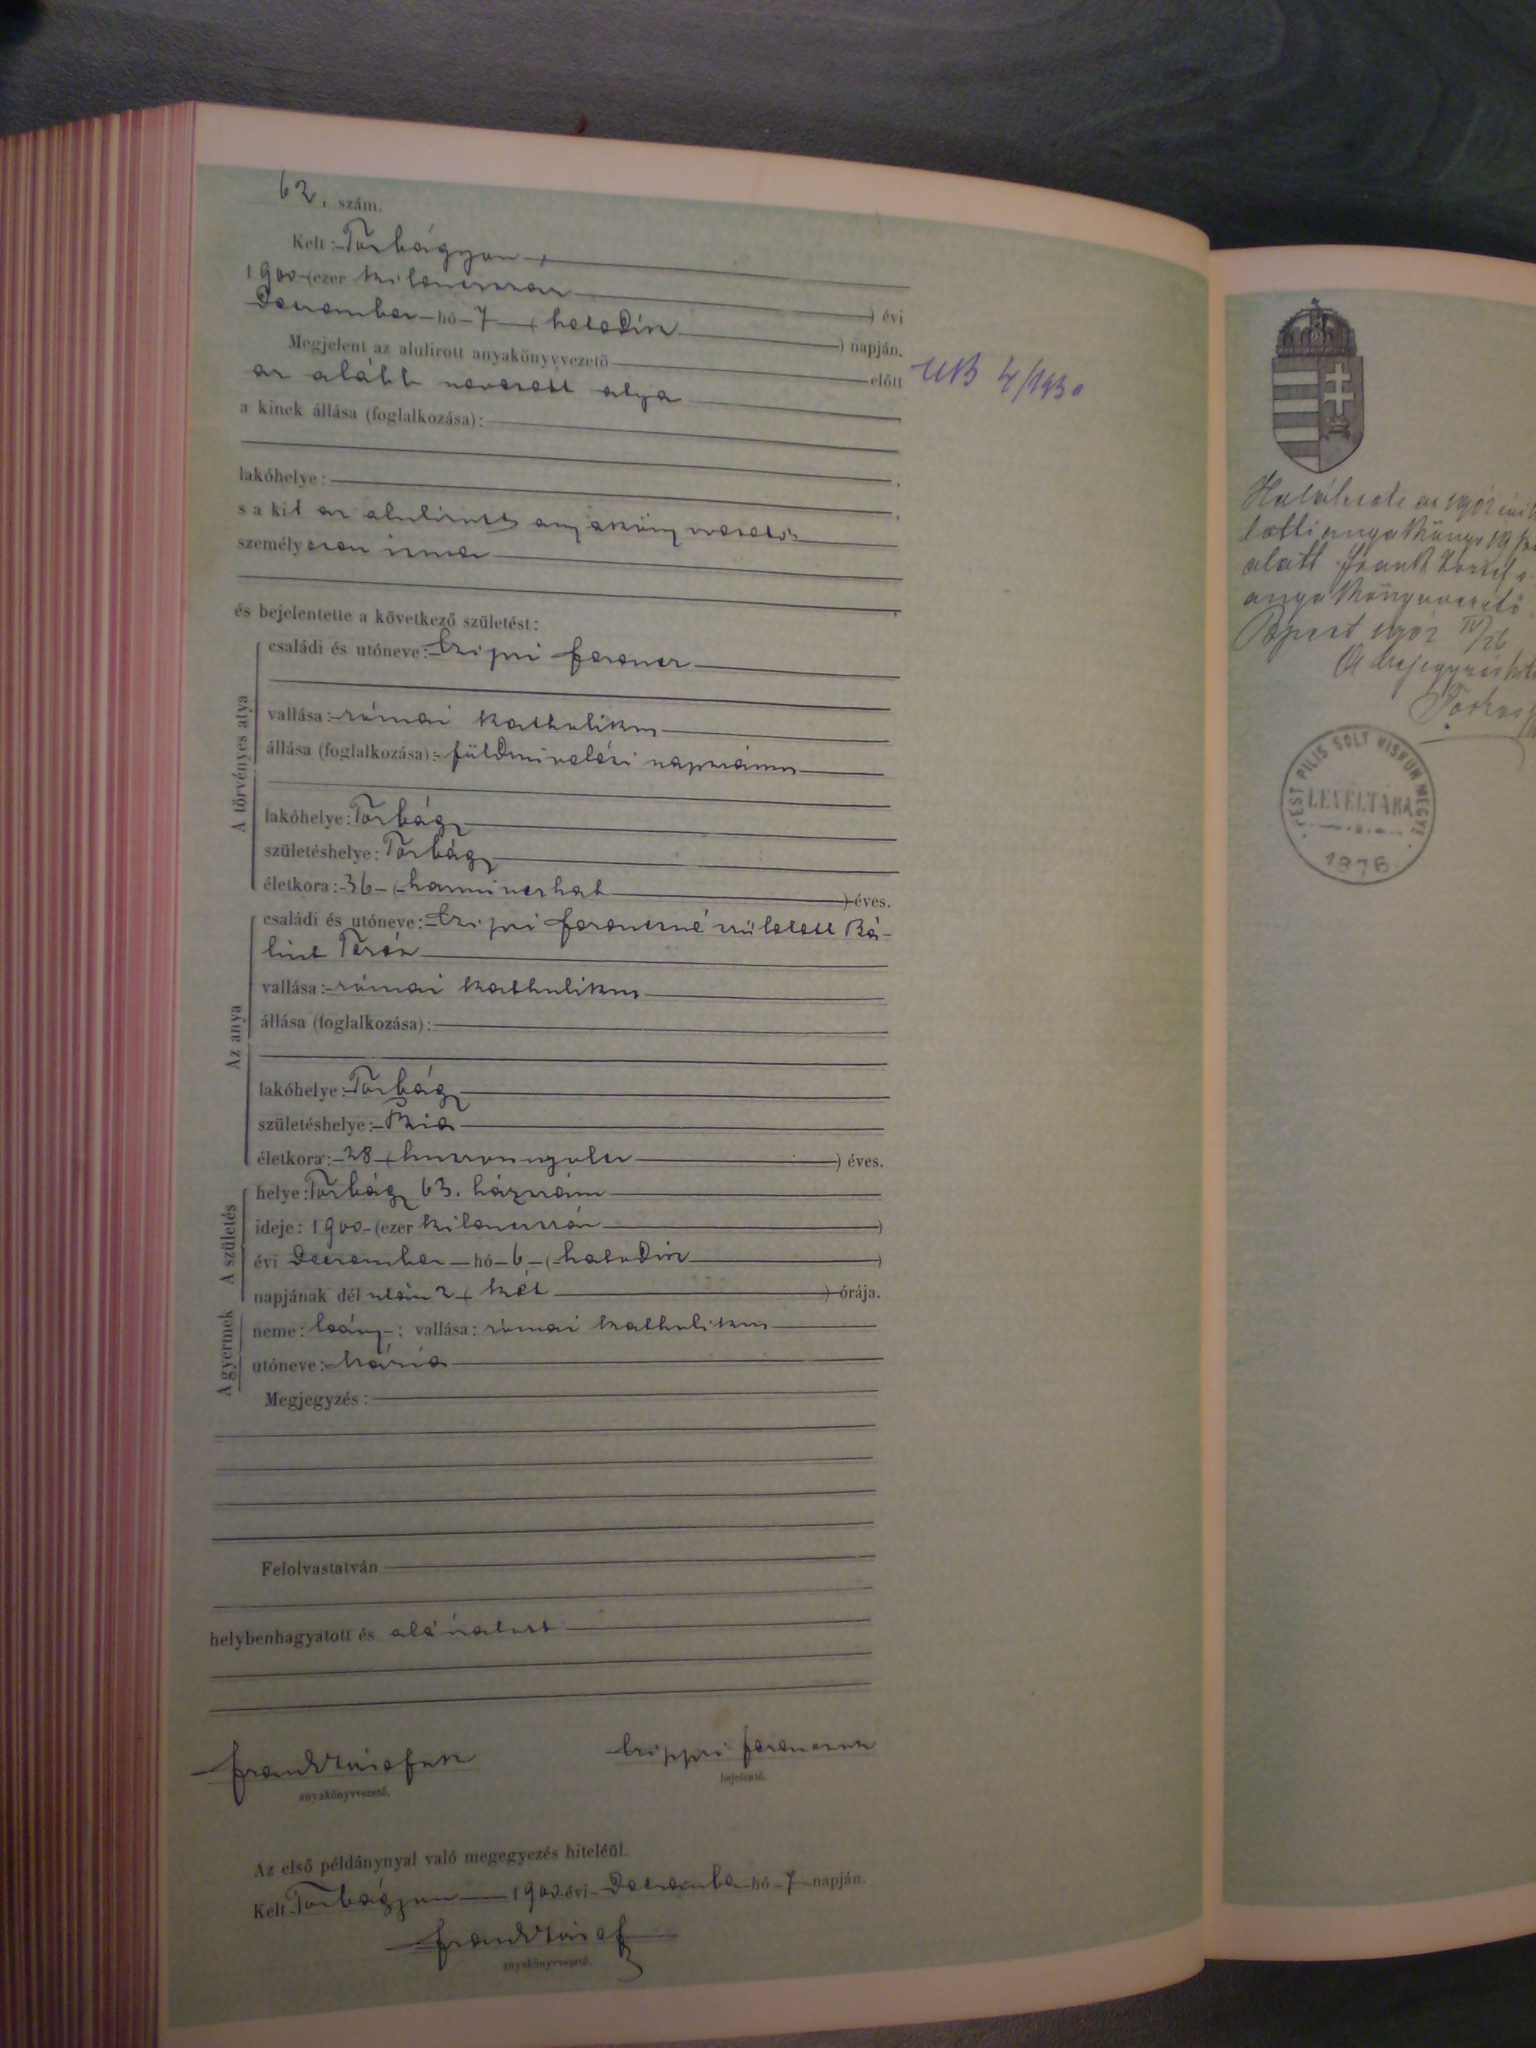 62. szám.
Kelt: Torbágyon
1900 (ezer kilencszáz ) évi
December hó 7 ( hetedik ) napján.
Megjelent az alulirott anyakönyvvezető előtt
az alább nevezett atya
a kinek állása (foglalkozása):
lakóhelye:
s a kit az alulirott anyakönyvvezető
személyesen ismer
és bejelentette a következő születést:
A törvényes atya
családi és utóneve: Czipri Ferencz
vallása: római katholikus
állása (foglalkozása): földmivelési napszámos
lakóhelye: Torbágy
születéshelye: Torbágy
életkora: 36 ( harminczhat ) éves.
Az anya
családi és utóneve: Czipri Ferenczné született Bá-
lint Teréz
vallása: római katholikus
állása (foglalkozása):
lakóhelye: Torbágy
születéshelye: Bia
életkora: 28 ( huszonnyolcz ) éves.
A születés
helye: Torbágy 63. házszám
ideje: 1900 (ezer kilenczszáz )
évi December hó 6 ( hatodik )
napjának dél után 2 ( két ) órája.
A gyermek
neme: leány ; vallása: római katholikus
utóneve: Mária
Megjegyzés:
Felolvastatván
helybenhagyatott és aláiratott
anyakönyvvezető. bejelentő.
Az első példánynyal való megegyezés hiteléül.
Kelt Torbágyon 1900 évi December hó 7 napján.
anyakönyvvezető.
UB 4/1930
alatt. Frank József
anyakönyvvezető
PEST PILIS SOLT KISKUN MEGYE
LEVÉLTÁRA
1876